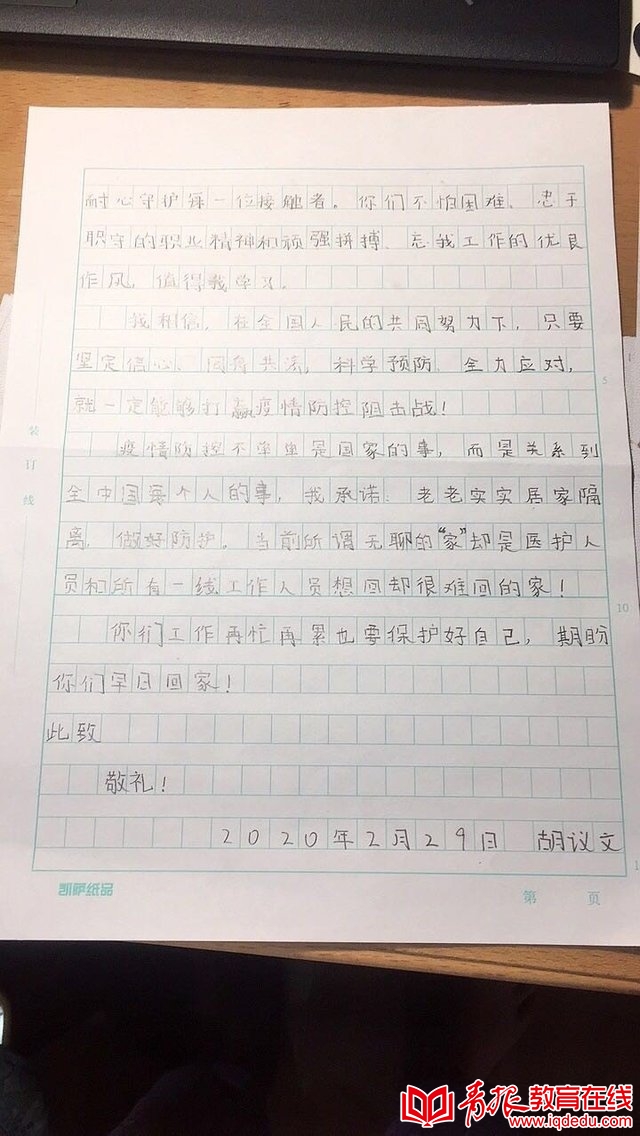 耐心守护每一位接触者。你们不怕困难、忠于
职守的职业精神和顽强拼搏、忘我工作的优良
作风，值得我学习。
我相信，在全国人民的共同努力下，只要
坚定信心、同舟共济，科学预防、全力应对，
就一定能够打赢疫情防控阻击战！
疫情防控不单单是国家的事，而是关系到
全中国每个人的事，我承诺：老老实实居家隔
离，做好防护。当前所谓无聊的“家”却是医护人
员和所有一线工作人员想回却很难回的家！
你们工作再忙再累也要保护好自己，期盼
你们早日回家！
此致
敬礼！
2020年2月29日 胡议文
装订线
5
10
凯萨纸品
第 页
青报教育在线
www.iqdedu.com